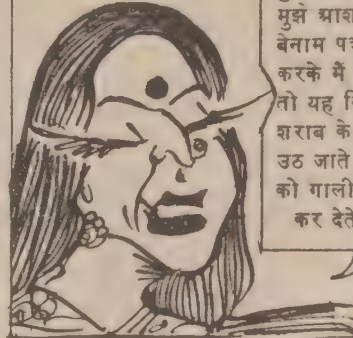 मुझे आश
बेनाम पत्र
करके मैं
तो यह
शराब के
उठ जाते
को गाली
कर देते